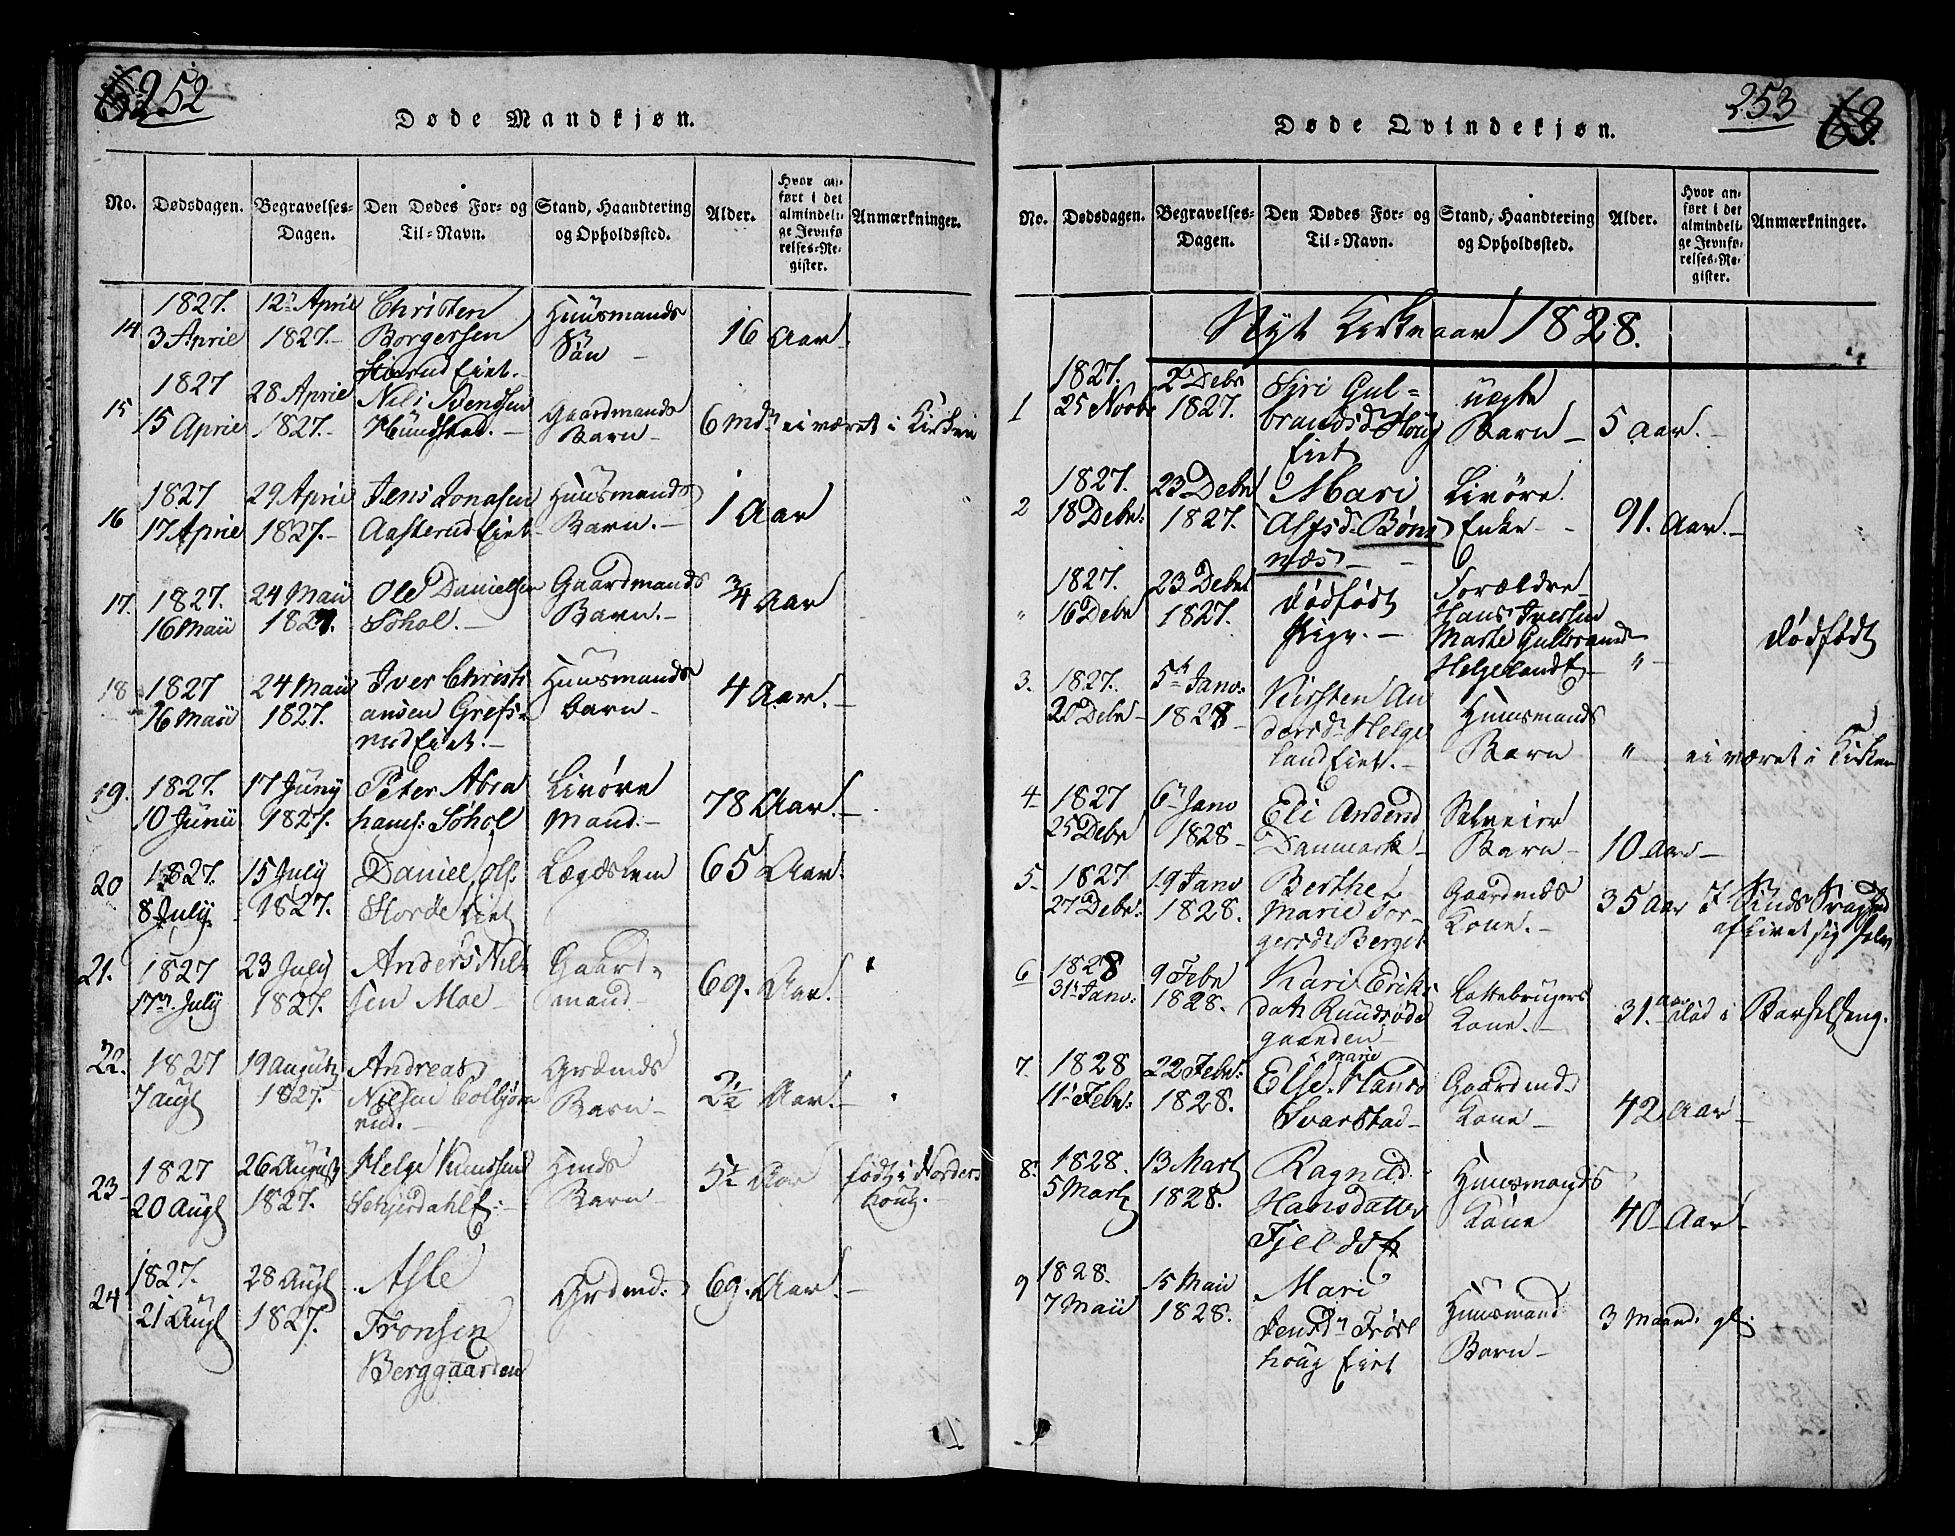 252
Døde Mandkjøn.
No.
Dødsdagen.
Begravelses-
Dagen.
Den Dødes For- og
Til-Navn.
Stand, Haandtering
og Opholdssted.
Alder.
Hvor an-
ført i det
almindeli-
ge Jevnfø-
relses-Re-
gister.
Anmærkninger.
14
1827.
3 April
12 April
1827.
Christen
Borgersen
Eiet.
Huusmands
Søn
16 Aar.
15
1827
15 April
28 April
1827.
Nils Svendsen
Hundstad.
Gaardmands
Barn
6 Mdr
ei været i Kirken
16
1827
17 April
29 April
1827.
Jens Jonasen
Aasterud Eiet
Huusmands
Barn.
1 Aar
17.
1827.
16 Maii
24 Maii
1827.
Ole Danielsen
Søhol.
Gaardmands
Barn.
3/4 Aar
18
1827
16 Maii
24 Maii
1827.
Iver Christi
ansen Grefs-
rud Eiet.
Huusmands
barn
4 Aar.
19.
1827.
10 Junii
17 Juny
1827.
Peter Abra
hams: Søhol
Livøre
Mand.
78 Aar.
20
1827.
8 July
15 July
1827.
Daniel Ols:
Eiet
Lægdslem
65 Aar.
21.
1827
17 July
23 July
1827.
Anders Nil-
sen Moe
Gaard-
mand
69. Aar.
22.
1827
7 Augt
19 August
1827.
Andreas
Nielsen Colbjørn
rud.
Grdmds
Barn
2 1/2 Aar.
23
1827
20 Augt
26 August
1827.
Helge Knudsen
Schjerdahl E:
Hmds
Barn
Aar
født i Norder
houg.
24
1827.
21 Augt
28 Augt
1827.
Asle
Tronsen
Berggaarden
Grdmd:
69. Aar.
253
63.
Døde Qvindekjøn.
No.
Dødsdagen.
Begravelses-
Dagen.
Den Dødes For- og
Til-Navn.
Stand, Haandtering
og Opholdssted.
Alder.
Hvor an-
ført i det
almindeli-
ge Jevnfø-
relses-Re-
gister.
Anmærkninger.
Nyt Kirkeaar 1828.
1
1827.
25 Novbr
2 Debr
1827.
Siri Gul-
brandsd Houg
Eiet
uægte
Barn
5 Aar.
2
1827.
18 Debr:
23 Debr
1827.
Mari
Alfsd. Bøns
næs
Livøre
Enke
91. Aar.
"
1827.
16 Debr
23 Debr
1827.
dødfødt
Pige.
Forældre
Hans Iversen
Marte Gulbrands
Helgeland E
"
dødfødt
3.
1827.
20 Debr
5 Janr:
1828
Kirsten An
dersd Helge
land Eiet.
Huusmands
Barn
"
ei været i Kirken
4
1827
25 Debr
6 Janr
1828
Eli Andersd
Danmark
Selveier
Barn
10 Aar
5.
1827
27 Debr:
19 Janr
1828.
Berthe
Marie Tor-
gersd Berget
Gaardmds
Kone.
35 Aar
af Livet sig selv
6
1828
31 Janr:
9 Febr
1828.
Kari Eriks
datt.
gaarden
Kone.
31. Aar
død i Barselseng.
7.
1828
11 Febr:
22 Febr:
1828.
Marie
Else Hansd
Svarstad
Gaardmd:
Kone
42 Aar
8.
1828.
5 Marti
13 Marti
1828.
Ragnild
Hansdatter
Fjelds E
Huusmands
Kone
40 Aar
9
1828.
7 Maii
15 Maii
1828.
Mari
Jensdr Frøs
houg Eiet
Huusmand
Barn
3 Maand: gl: